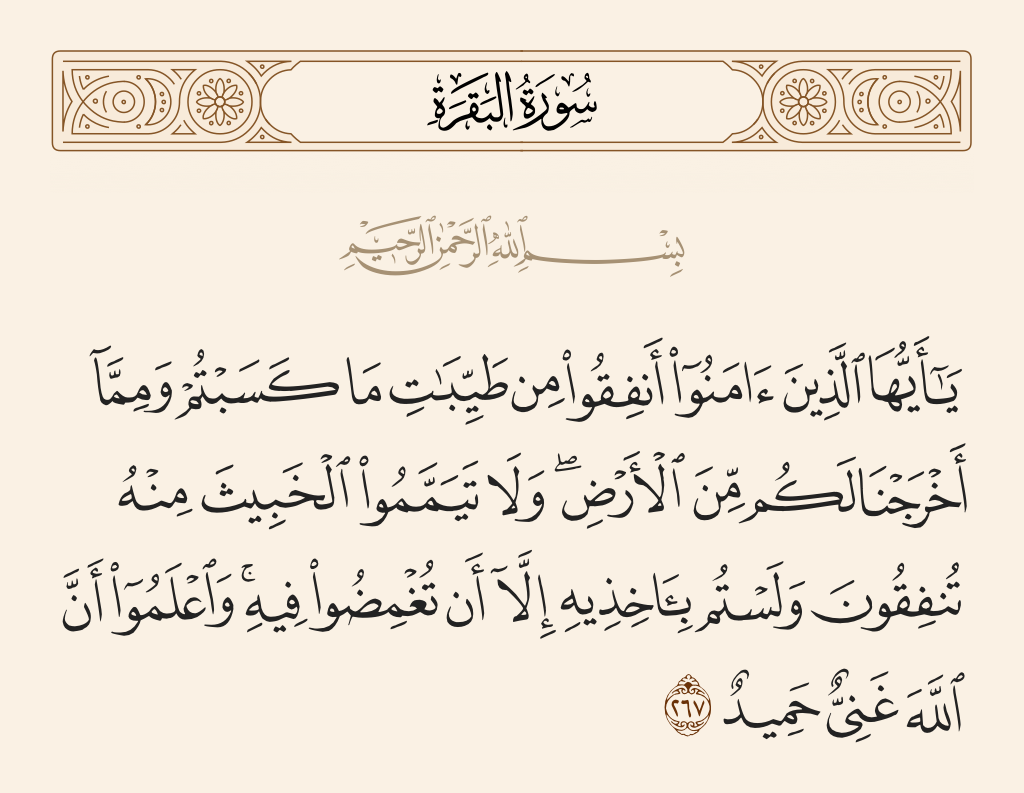 سُورَةُ البَقَرَةِ
بِسْمِ ٱللَّهِ ٱلرَّحْمَٰنِ ٱلرَّحِيمِ
يَٰٓأَيُّهَا ٱلَّذِينَ ءَامَنُوٓا۟ أَنفِقُوا۟ مِن طَيِّبَٰتِ مَا كَسَبْتُمْ وَمِمَّآ
أَخْرَجْنَا لَكُم مِّنَ ٱلْأَرْضِ ۖ وَلَا تَيَمَّمُوا۟ ٱلْخَبِيثَ مِنْهُ
تُنفِقُونَ وَلَسْتُم بِـَٔاخِذِيهِ إِلَّآ أَن تُغْمِضُوا۟ فِيهِ ۚ وَٱعْلَمُوٓا۟ أَنَّ
ٱللَّهَ غَنِىٌّ حَمِيدٌ ٢٦٧